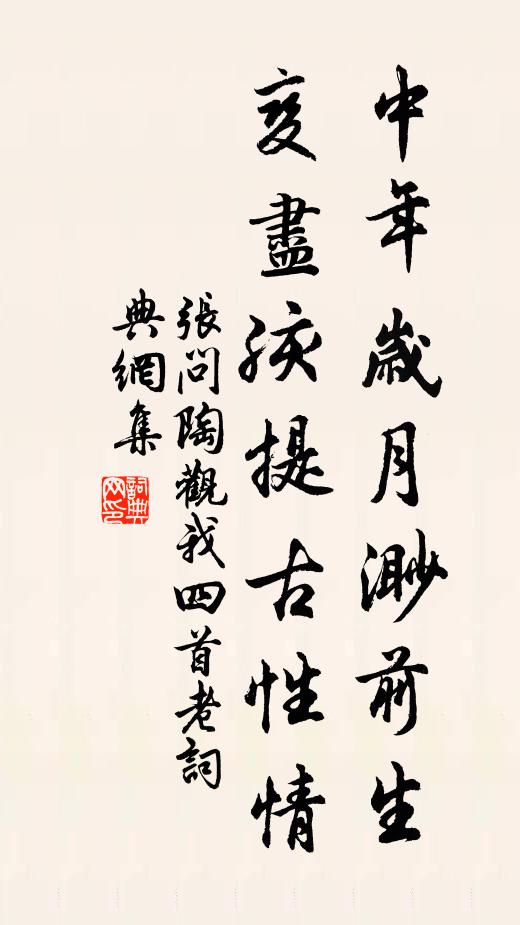 中年歲月渺前生
变盡孩提古性情
張問陶觀我四首老詞
典網集
詞典网印